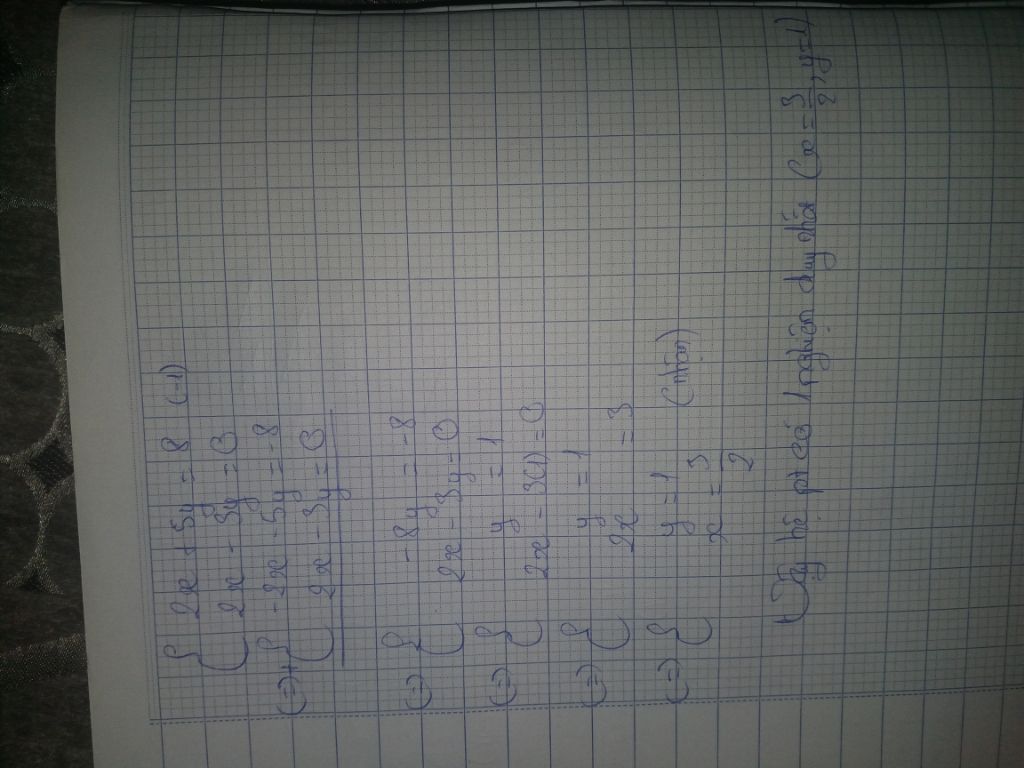 { 2x + 5y = 8 (-1)
2x - 3y = 0
(=) + { -2x - 5y = -8
2x - 3y = 0
(=) { -8y = -8
2x - 3y = 0
(=) { y = 1
2x - 3(1) = 0
(=) { y = 1
2x = 3
(=) { y = 1
x = 3/2 (nhận)
Vậy hệ pt có 1 nghiệm duy nhất (x = 3/2, y = 1)